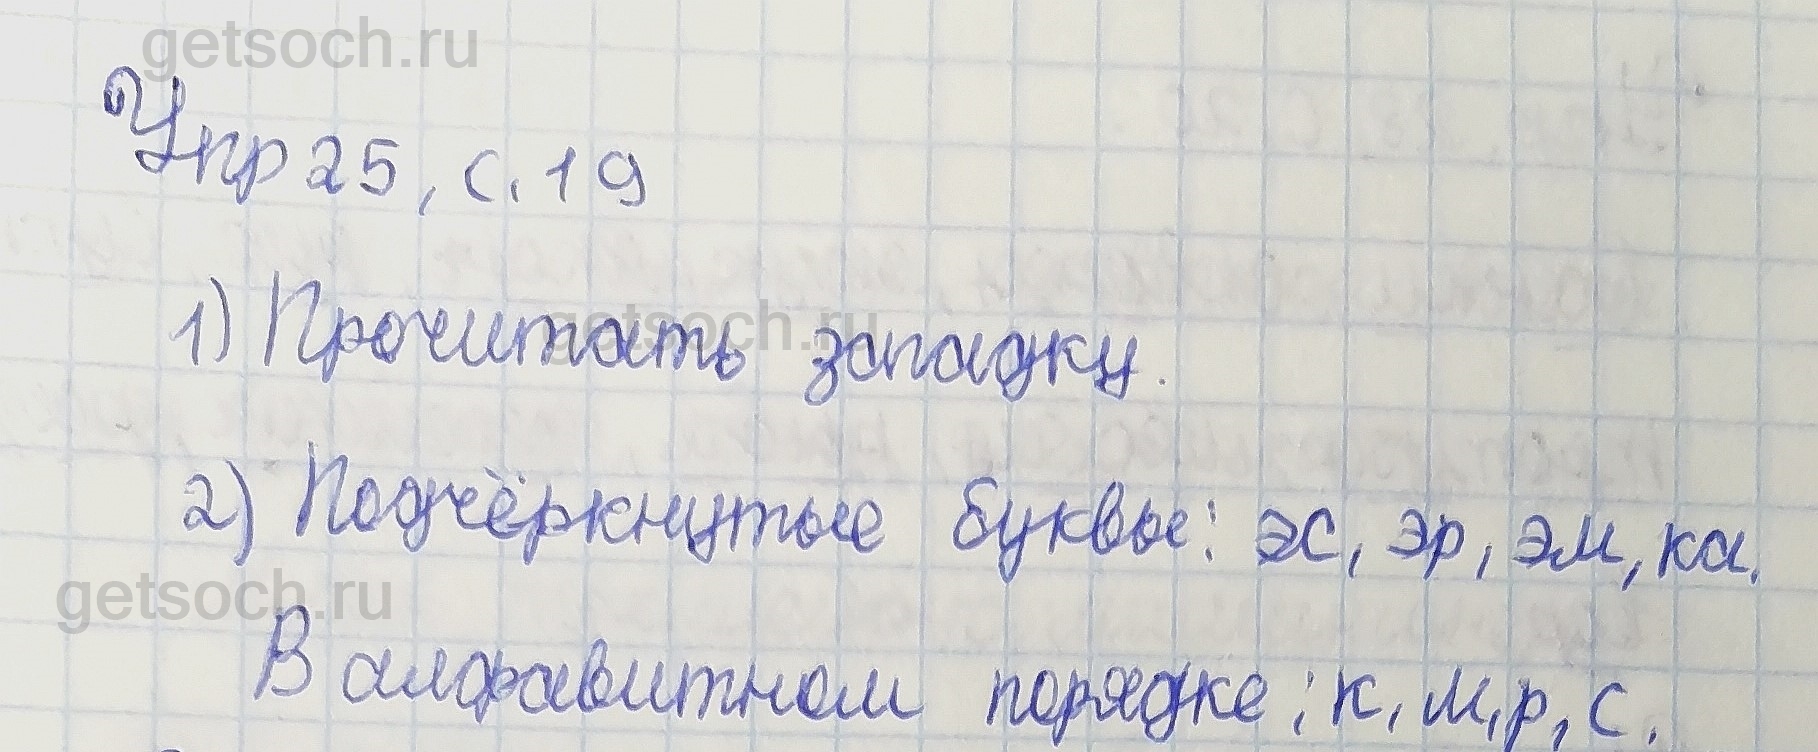 getsoch.ru
Упр 25, с. 19
1) Прочитать загадку.
getsoch.ru
2) Подчёркнутые буквы: эс, эр, эм, ка.
getsoch.ru
В алфавитном порядке: к, м, р, с.